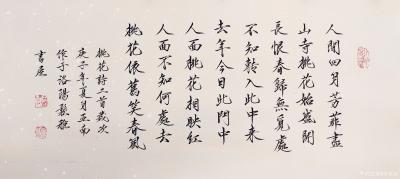 人間四月芳菲盡
山寺桃花始盛開
長恨春歸無覓處
不知轉入此中來
去年今日此門中
人面桃花相映紅
人面不知何處去
桃花依舊笑春風
桃花詩二首歲次
庚子年夏月王南
作于洛陽
書屋